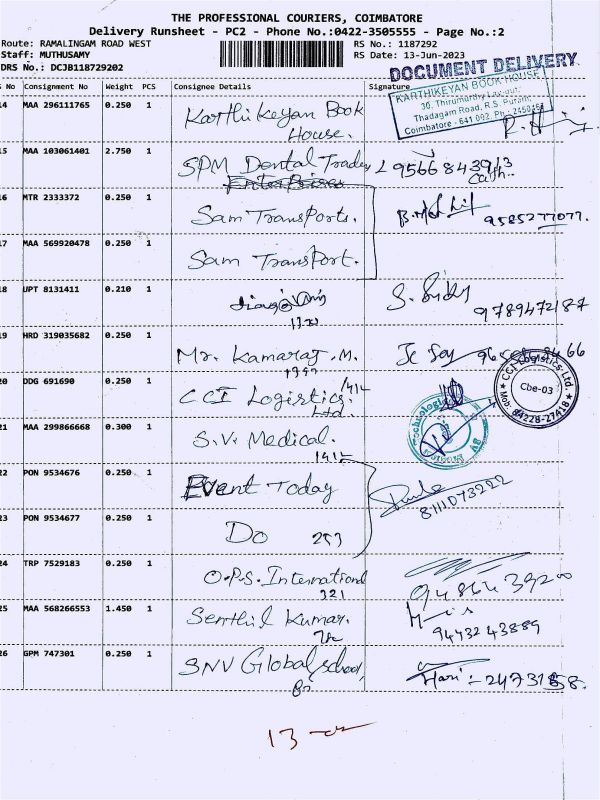 THE PROFESSIONAL COURIERS, COIMBATORE
Delivery Runsheet - PC2 - Phone No.:0422-3505555 - Page No.:2
Route: RAMALINGAM ROAD WEST RS No.: 1187292
Staff: MUTHUSAMY RS Date: 13-Jun-2023
DRS No.: DCJB118729202
DOCUMENT DELIVERY
S No Consignment No Weight PCS Consignee Details Signature
KARTHIKEYAN BOOK HOUSE
30, Thirumurthy Layout,
Thadagam Road, R.S. Puram,
Coimbatore - 641 002. Ph:
14 MAA 296111765 0.250 1 Karthikeyan Book
House.
15 MAA 103061401 2.750 1 SPM Dental Trades
16 MTR 2333372 0.250 1 Sam Transports. 9585277077.
17 MAA 569920478 0.250 1 Sam Transport.
18 UPT 8131411 0.210 1 9789472187
19 HRD 319035682 0.250 1 Mr. Kamaraj .M.
20 DDG 691690 0.250 1 CCI Logistics.
Ltd.
CCI Logistics Ltd.
Cbe-03
Mob: 84228-27418
21 MAA 299866668 0.300 1 S.V. Medical.
22 PON 9534676 0.250 1 Event Today
8111073222
23 PON 9534677 0.250 1 Do 253
24 TRP 7529183 0.250 1 O.P.S. International
321
25 MAA 568266553 1.450 1 Senthil Kumar.
94432 43889
26 GPM 747301 0.250 1 SNV Global School,
Hari :- 2473158.
13